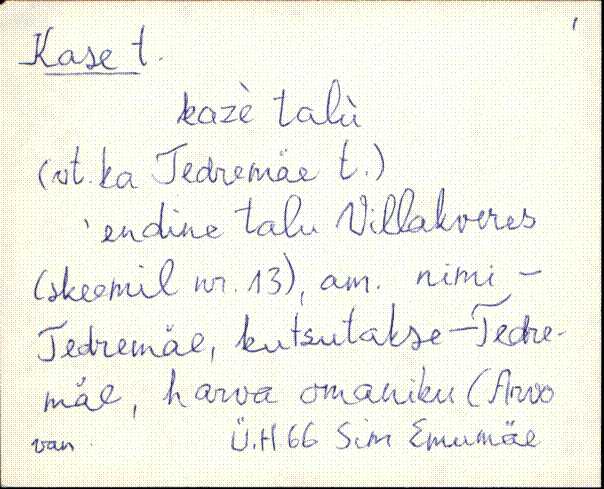 Kase t.
kazè talù
(vt. ka Tedremäe t.)
'endine talu Villakveres
(skeemil nr. 13), am. nimi -
Tedremäe, kutsutakse - Tedre-
mäe, harva omaniku (Arvo
van. Ü.H 66 Sim Emumäe